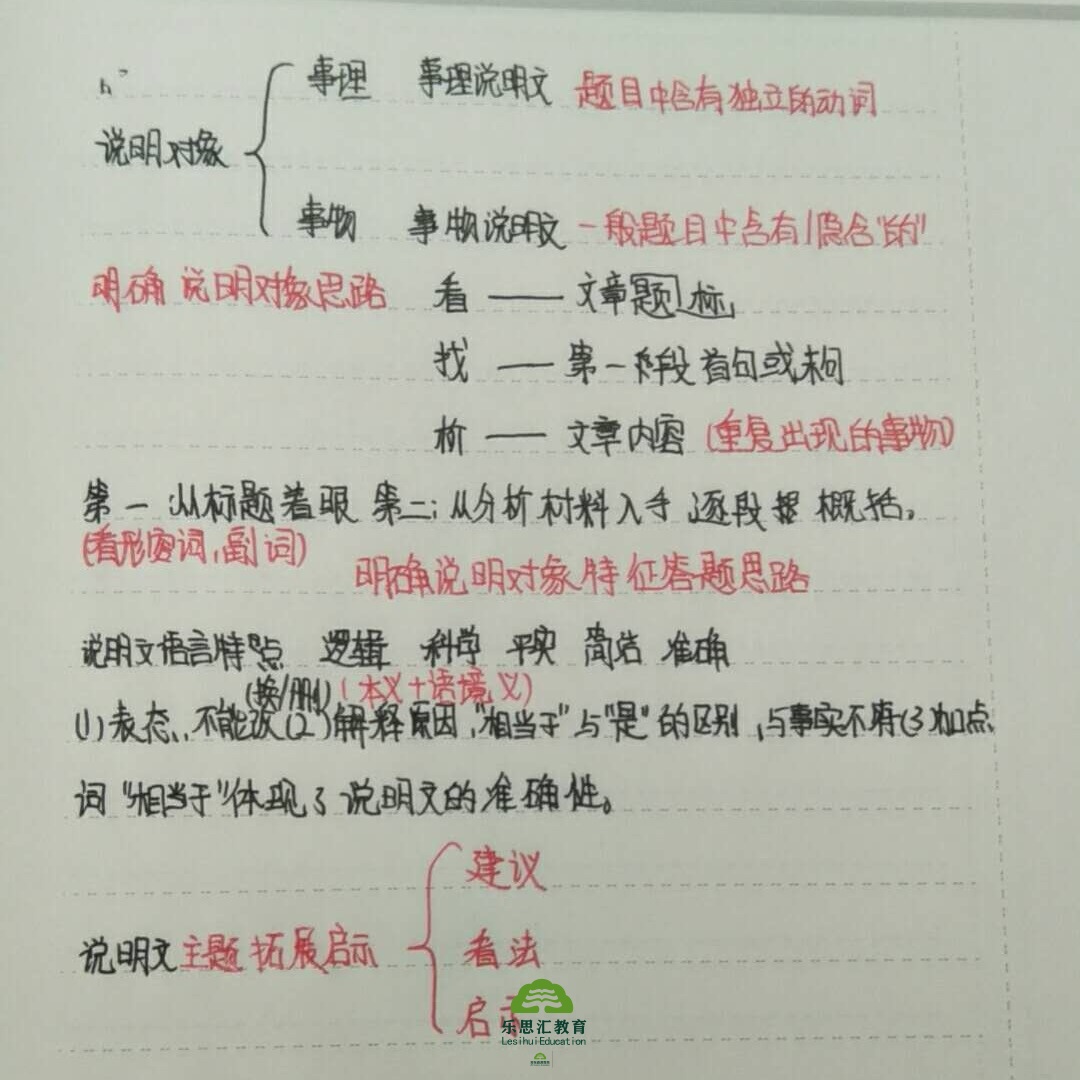 事理 事理说明文 题目中含有独立的动词
说明对象
事物 事物说明文 一般题目中含有/隐含"的"
明确说明对象思路 看——文章题标
找——第一段首句或末句
析——文章内容(重复出现的事物)
第一从标题着眼 第二:从分析材料入手 逐段 概括。
(看形容词,副词)
明确说明对象特征答题思路
说明文语言特点 逻辑 科学 平实 简洁 准确
(换/删)(本义+语境义)
(1)表态,不能改(2)解释原因,"相当于"与"是"的区别,与事实不符(3)加点
词"相当于"体现了说明文的准确性。
建议
说明文主题拓展启示
看法
启示
乐思汇教育
Lesihui·Education